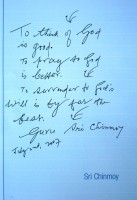 To think of God
is good.
To pray to God
is better.
To surrender to God's
Will is by far the
best.
Guru Sri Chinmoy
Sri Chinmoy